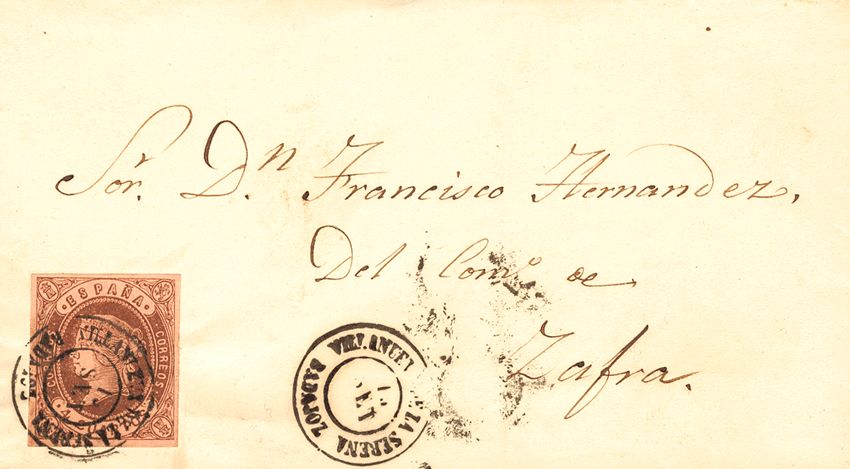 Sōr. Dⁿ. Francisco Hernandez,
Del Comº de
Zafra.
ESPAÑA
CORREOS
VILLANUEVA DE LA SERENA
BADAJOZ
VILLANUE LA SERENA
BADAJOZ